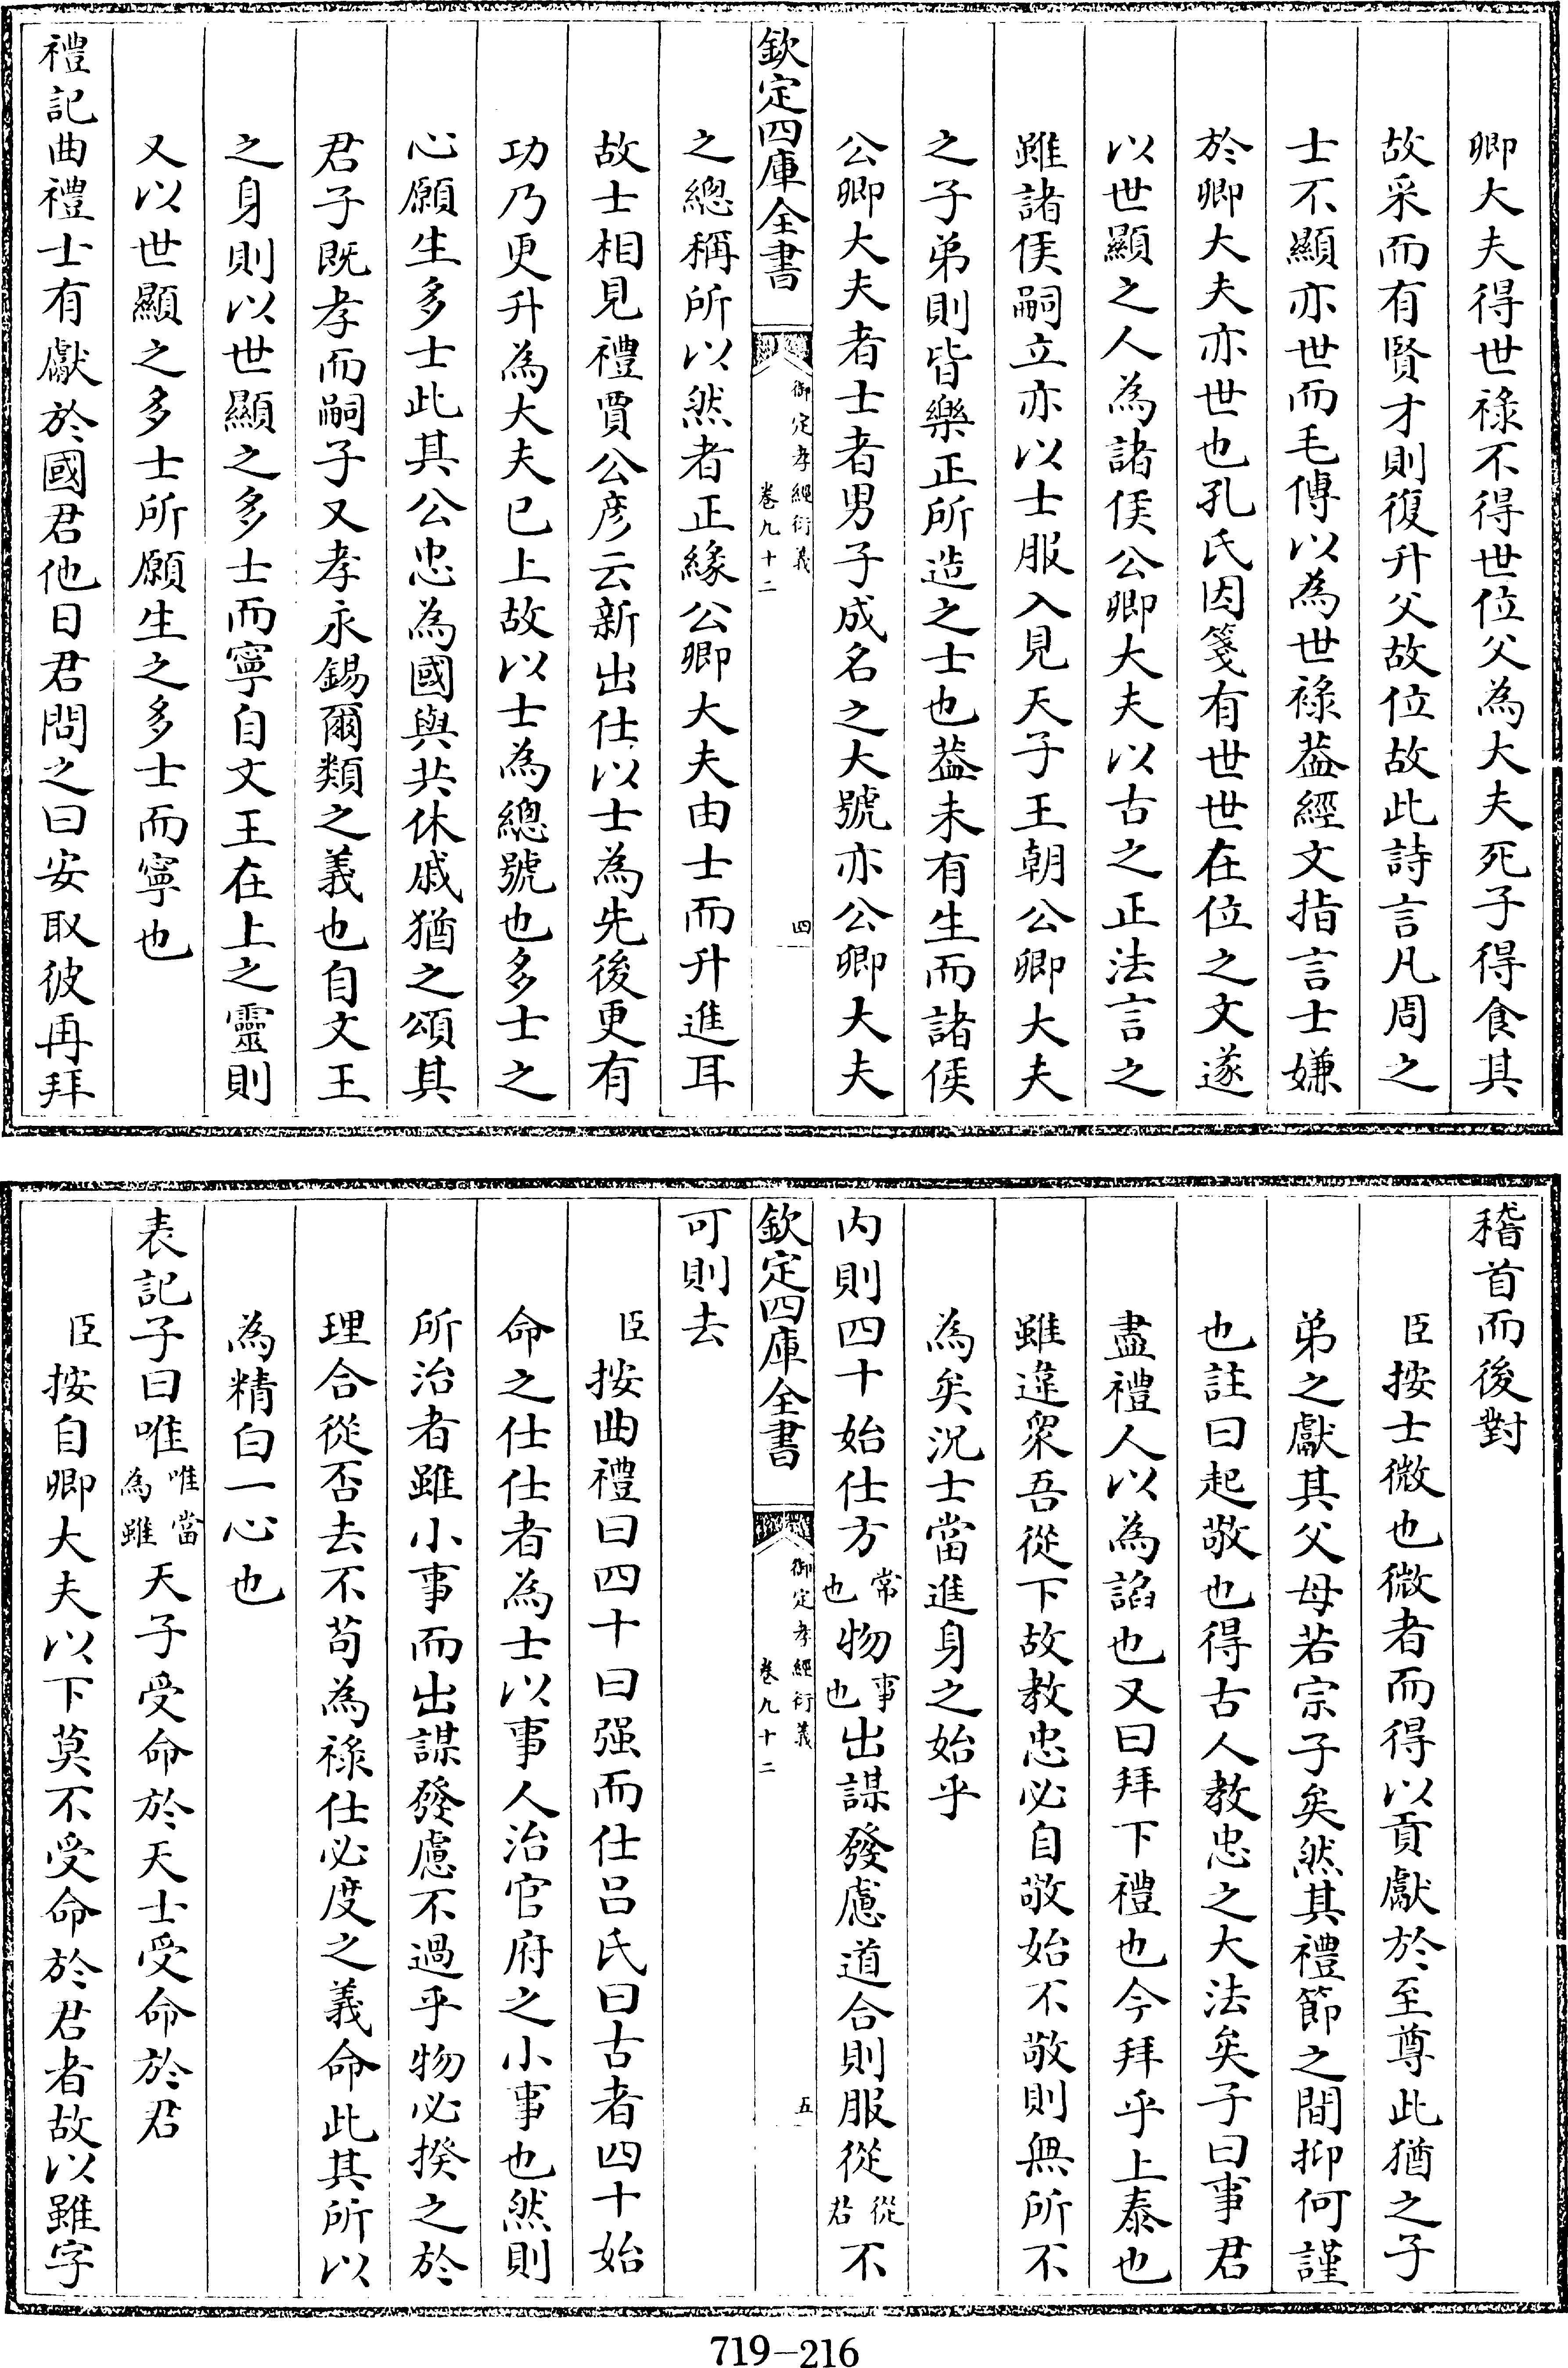 卿大夫得世祿不得世位父為大夫死子得食其
故采而有賢才則復升父故位故此詩言凡周之
士不顯亦世而毛傳以為世祿葢經文指言士嫌
於卿大夫亦世也孔氏因箋有世世在位之文遂
以世顯之人為諸侯公卿大夫以古之正法言之
雖諸侯嗣立亦以士服入見天子王朝公卿大夫
之子弟則皆樂正所造之士也葢未有生而諸侯
公卿大夫者士者男子成名之大號亦公卿大夫
欽定四庫全書
御定孝經衍義
卷九十二
四
之總稱所以然者正緣公卿大夫由士而升進耳
故士相見禮賈公彦云新出仕以士為先後更有
功乃更升為大夫已上故以士為總號也多士之
心願生多士此其公忠為國與共休戚猶之頌其
君子既孝而嗣子又孝永錫爾類之義也自文王
之身則以世顯之多士而寧自文王在上之靈則
又以世顯之多士所願生之多士而寧也
禮記曲禮士有獻於國君他日君問之曰安取彼再拜
稽首而後對
臣按士微也微者而得以貢獻於至尊此猶之子
弟之獻其父母若宗子矣然其禮節之間抑何謹
也註曰起敬也得古人教忠之大法矣子曰事君
盡禮人以為諂也又曰拜下禮也今拜乎上泰也
雖違衆吾從下故教忠必自敬始不敬則無所不
為矣況士當進身之始乎
内則四十始仕方常也物事也出謀發慮道合則服從從君不
欽定四庫全書
御定孝經衍義
卷九十二
五
可則去
臣按曲禮曰四十曰强而仕呂氏曰古者四十始
命之仕仕者為士以事人治官府之小事也然則
所治者雖小事而出謀發慮不過乎物必揆之於
理合從否去不苟為祿仕必度之義命此其所以
為精白一心也
表記子曰唯唯當為雖天子受命於天士受命於君
臣按自卿大夫以下莫不受命於君者故以雖字
719-216